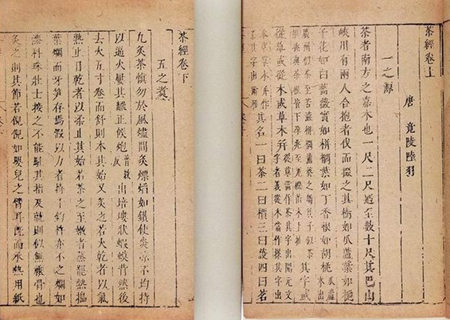 茶經卷上
唐 竟陵陸羽
一之源
茶者南方之嘉木也一尺二尺迺至數十尺其巴山
峽川有兩人合抱者伐而掇之其樹如瓜蘆葉如梔
子花如白薔薇實如栟櫚葉如丁香根如胡桃
其字或
從草或從木或草木并
其名一曰茶二曰檟三曰蔎四曰茗
茶經卷下
五之煮
凡炙茶慎勿於風燼間炙熛焰如鑽使炎涼不均持
以逼火屢其翻正候炮出培塿狀蝦蟆背然後
去火五寸卷而舒則本其始又炙之若火乾者以氣
熟止日乾者以柔止其始若茶之至嫩者蒸罷熱搗
葉爛而牙筍存焉假以力者持千鈞杵亦不之爛如
漆科珠壯士接之不能駐其指及就則似無穰骨也
炙之則其節若倪倪如嬰兒之臂耳既而承熱用紙